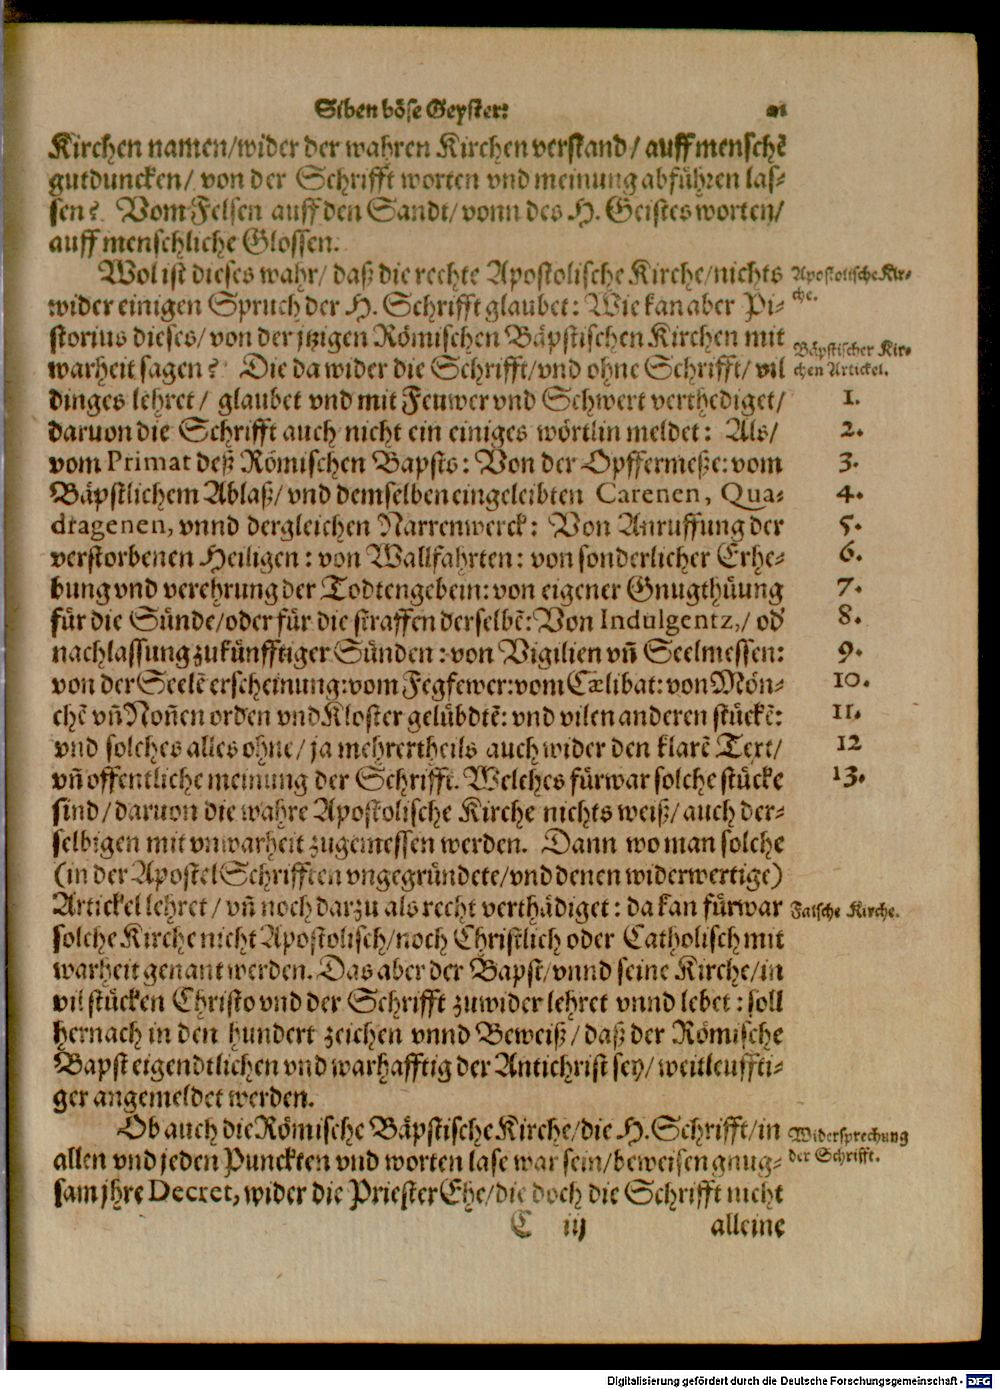 Siben böse Geyster: 21
Kirchen namen/wider der wahren Kirchen verstand/ auff menschẽ
gutduncken/ von der Schrifft worten vnd meinung abführen las-
sen? Vom Felsen auff den Sandt/ vonn des H. Geistes worten/
auff menschliche Glossen.
Wol ist dieses wahr/ daß die rechte Apostolische Kirche/nichts
Apostolische Kir-
che.
wider einigen Spruch der H. Schrifft glaubet: Wie kan aber Pi-
storius dieses/ von der jtzigen Römischen Bäpstischen Kirchen mit
Bäpstischer Kir-
chen Artickel.
warheit sagen? Die da wider die Schrifft/vnd ohne Schrifft/ vil
dinges lehret/ glaubet vnd mit Feuwer vnd Schwert verthediget/ 1.
daruon die Schrifft auch nicht ein einiges wörtlin meldet: Als/ 2.
vom Primat deß Römischen Bapsts: Von der Opffermeße: vom 3.
Bäpstlichem Ablaß/ vnd demselben eingeleibten Carenen, Qua- 4.
dragenen, vnnd dergleichen Narrenwerck: Von Anruffung der 5.
verstorbenen Heiligen: von Wallfahrten: von sonderlicher Erhe- 6.
bung vnd verehrung der Todtengebein: von eigener Gnugthüung 7.
für die Sünde/oder für die straffen derselbẽ: Von Indulgentz,/ od' 8.
nachlassung zukünfftiger Sünden: von Vigilien vñ Seelmessen: 9.
von der Seelẽ erscheinung: vom Fegfewer: vom Cælibat: von Mön- 10.
chẽ vñ Noñen orden vnd Kloster gelübdtẽ: vnd vilen anderen stückẽ: 11.
vnd solches alles ohne/ ja mehrertheils auch wider den klarẽ Text/ 12
vñ offentliche meinung der Schrifft. Welches fürwar solche stücke 13.
sind/ daruon die wahre Apostolische Kirche nichts weiß/ auch der-
selbigen mit vnwarheit zugemessen werden. Dann wo man solche
(in der Apostel Schrifften vngegründete/vnd denen widerwertige)
Artickel lehret/ vñ noch darzu als recht verthädiget: da kan fürwar
Falsche Kirche.
solche Kirche nicht Apostolisch/noch Christlich oder Catholisch mit
warheit genant werden. Das aber der Bapst/ vnnd seine Kirche/ in
vil stücken Christo vnd der Schrifft zuwider lehret vnnd lebet: soll
hernach in den hundert zeichen vnnd Beweiß/ daß der Römische
Bapst eigendtlichen vnd warhafftig der Antichrist sey/ weitleuffti-
ger angemeldet werden.
Ob auch die Römische Bäpstische Kirche/die H. Schrifft/in
Widersprechung
der Schrifft.
allen vnd jeden Punckten vnd worten lase war sein/beweisen gnug-
sam jhre Decret, wider die Priester Ehe/die doch die Schrifft nicht
C iij alleine
Digitalisierung gefördert durch die Deutsche Forschungsgemeinschaft - DFG